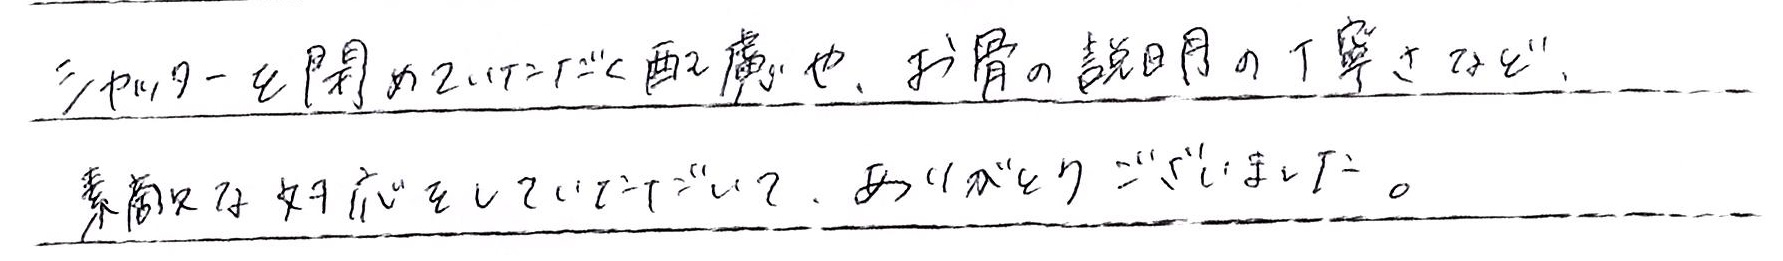 シャッターを閉めていただく配慮や、お骨の説明の丁寧さなど、
素敵な対応をしていただいて、ありがとうございました。